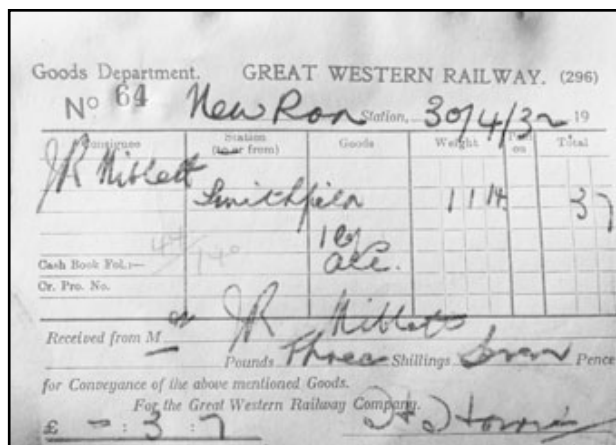 Goods Department. GREAT WESTERN RAILWAY. (296)
No 64 New Ron Station, 30/4/32 19
Consignee Station (to or from) Goods Weight Paid on Total
JR Niblett
Smithfield 1 1 14 3 7
Cash Book Fol.:—
Cr. Pro. No.
Received from M JR Niblett
— Pounds Three Shillings Seven Pence
for Conveyance of the above mentioned Goods.
For the Great Western Railway Company.
£ — : 3 : 7